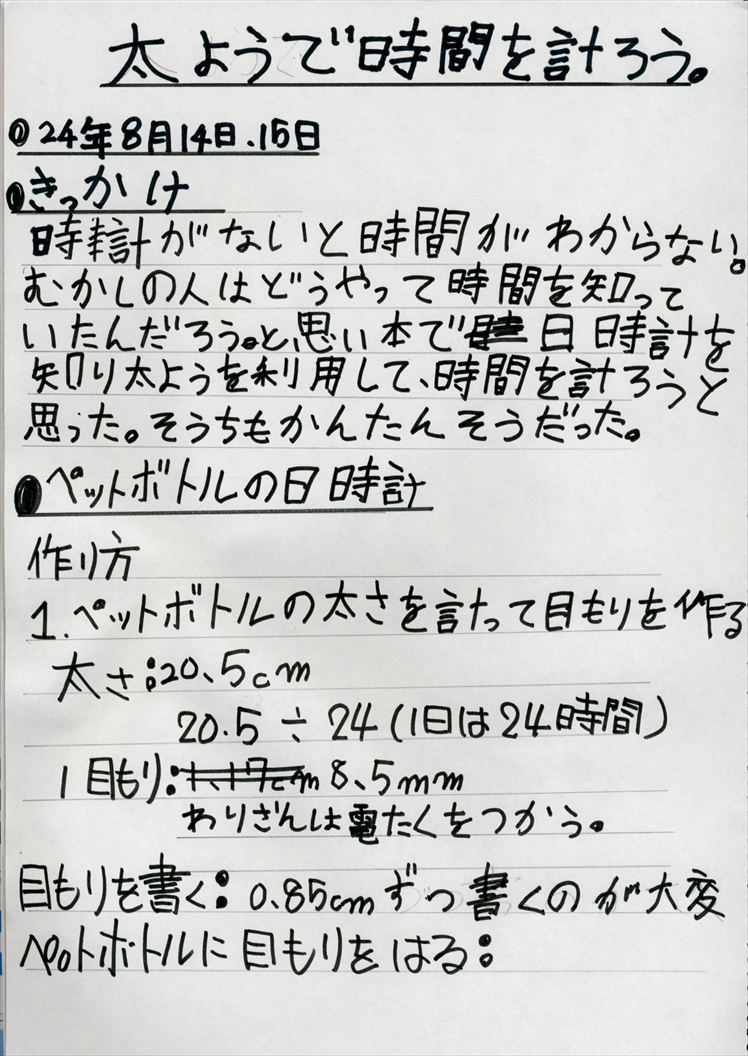 太ようで時間を計ろう。
24年8月14日.15日
きっかけ
時計がないと時間がわからない。
むかしの人はどうやって時間を知って
いたんだろう。と、思い本で日時計を
知り太ようを利用して、時間を計ろうと
思った。そうちもかんたんそうだった。
ペットボトルの日時計
作り方
1.ペットボトルの太さを計って目もりを作る
太さ:20.5cm
20.5÷24(1日は24時間)
1目もり:1.17cm 8.5mm
わりざんは電たくをつかう。
目もりを書く:0.85cmずつ書くのが大変
ペットボトルに目もりをはる: